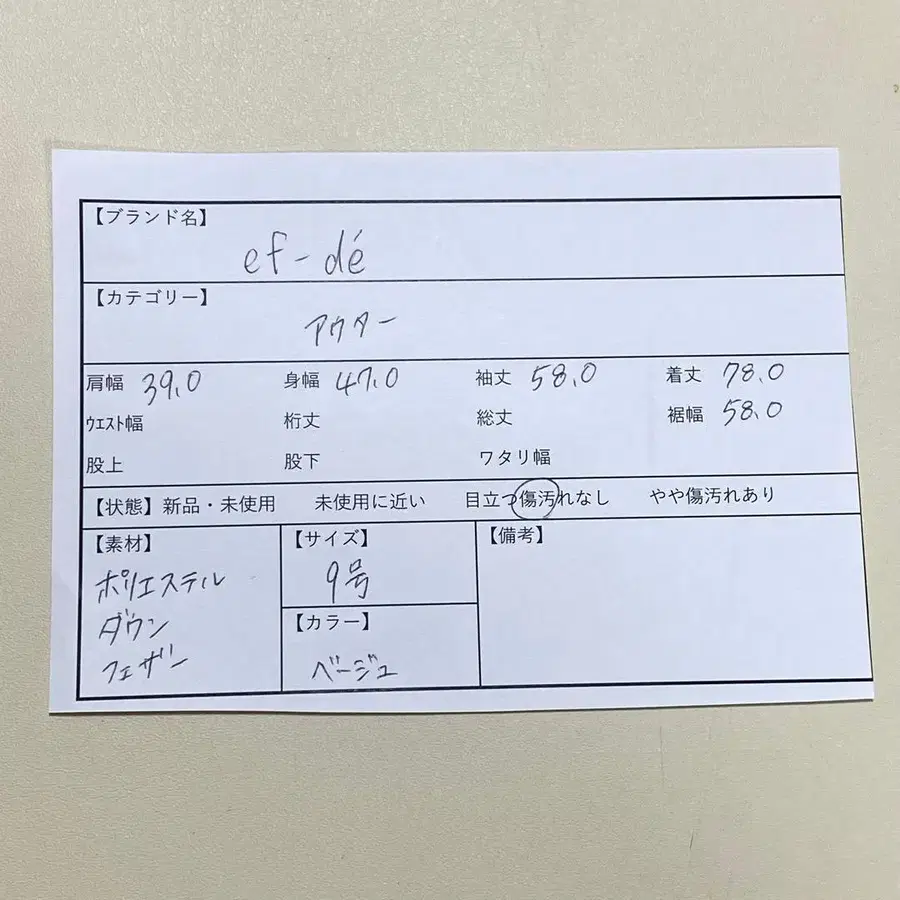 【ブランド名】
ef-dé
【カテゴリー】
アウター
肩幅 39.0 身幅 47.0 袖丈 58.0 着丈 78.0
ウエスト幅 裄丈 総丈 裾幅 58.0
股上 股下 ワタリ幅
【状態】新品・未使用 未使用に近い 目立つ傷汚れなし やや傷汚れあり
【素材】
ポリエステル
ダウン
フェザー
【サイズ】
9号
【カラー】
ベージュ
【備考】